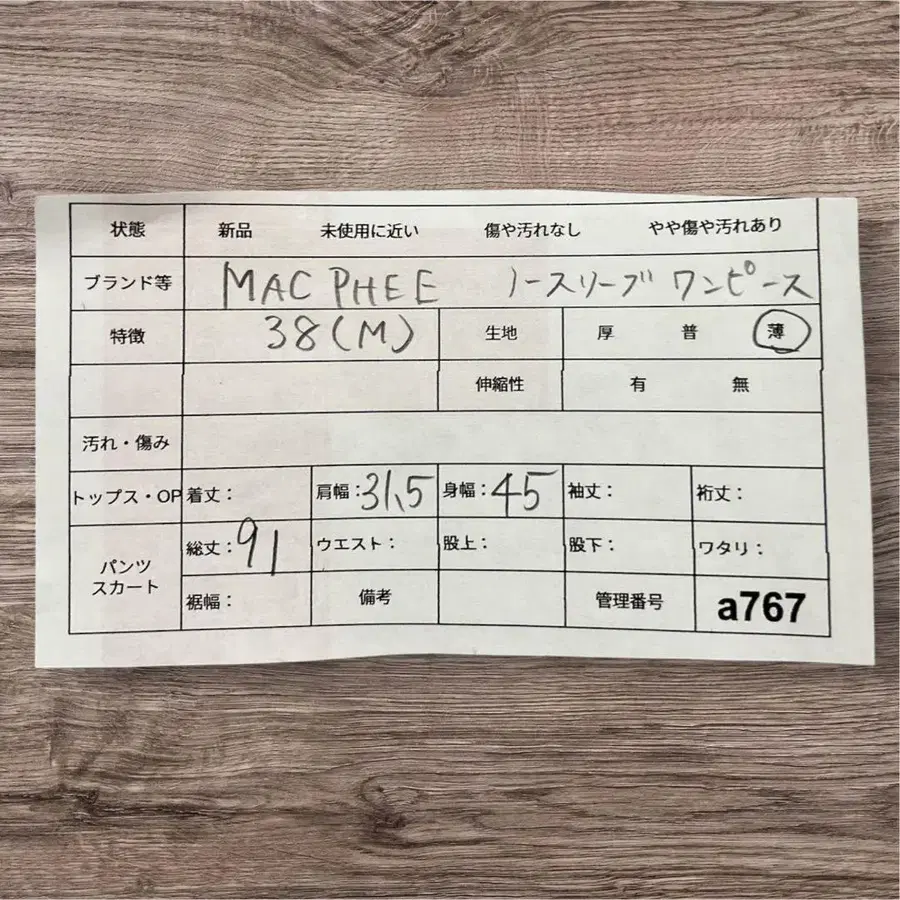 状態 新品 未使用に近い 傷や汚れなし やや傷や汚れあり
ブランド等 MACPHEE ノースリーブ ワンピース
特徴 38(M) 生地 厚 普 薄
伸縮性 有 無
汚れ・傷み
トップス・OP 着丈： 肩幅：31,5 身幅：45 袖丈： 裄丈：
パンツ スカート 総丈：91 ウエスト： 股上： 股下： ワタリ：
裾幅： 備考 管理番号 a767